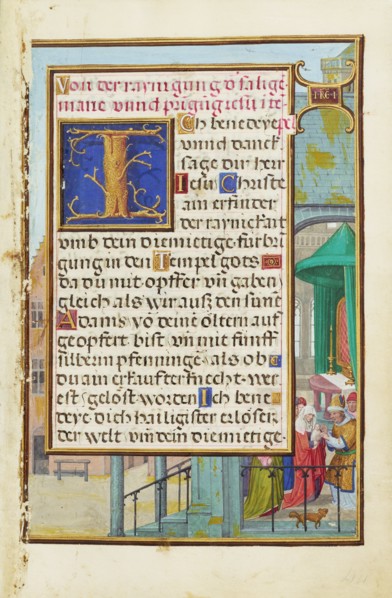 Von der raynigung d' salige
marie vnnd prigūg iesu i te
pel
Ich benedeye
vnnd danck
sage dir herr
Iesu Christe
ain erfinder
der raynickait
vmb dein diemietige fürbri
gung in den Tempel gots
da du mit opffer vñ gaben
gleich als wir auß den sūne
Adams vō deinē öltern auf
geopfert bist vñ mit fünff
silberin pfenninge als ob
du ain erkaufter knecht wer
est gelöst worden Ich bene
deye dich hailigister erlöser
der welt vm dein diemietige